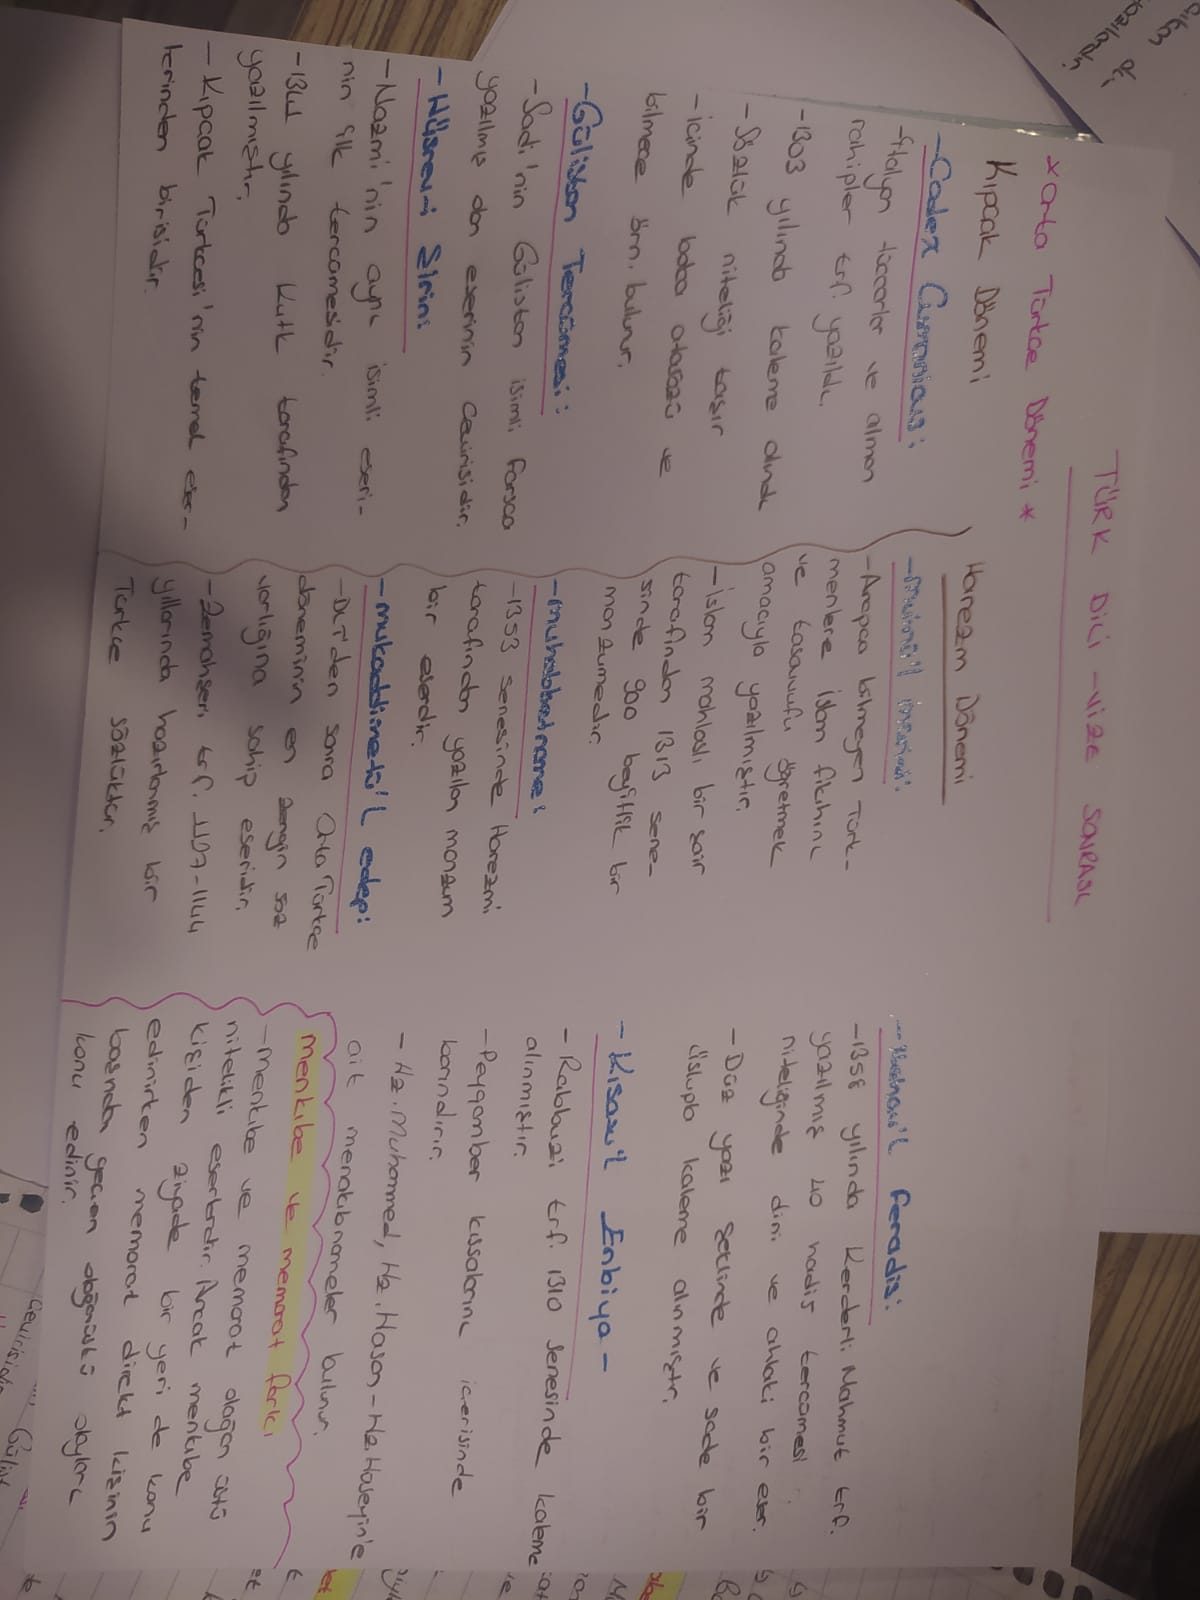 TÜRK DİLİ -VİZE SONRASI
*Orta Türkçe Dönemi*
Kıpçak Dönemi
-Codex Cumanicus:
-İtalyan tüccarlar ve alman
rahipler trf. yazıldı.
-1303 yılında kaleme alındı
-Sözlük niteliği taşır
-İcinde bata atasözü ve
bilmece örn. bulunur.
-Gülistan Tercümesi:
-Sadi'nin Gülistan isimli Farsca
yazılmış olan eserinin çevirisidir.
-Hüsrev-i Şirin:
-Nazmi'nin aynı isimli eseri-
nin ilk tercümesidir.
-1341 yılında Kutb tarafından
yazılmıştır.
-Kıpcak Türkcesi'nin temel eser-
lerinden birisidir.
Harezm Dönemi
-Muinü'l mürid:
-Arapça bilmeyen Türk-
menlere islam fıkıhını
ve tasavvufu öğretmek
amacıyla yazılmıştır.
-İslam mahlaslı bir şair
tarafından 1313 sene-
sinde 900 beyitlik bir
manzumedir.
-Muhabbetname:
-1353 senesinde Harezmi
tarafından yazılan manzum
bir eserdir.
-mukaddimetü'l edep:
-DLT'den sonra Orta Türkçe
döneminin en zengin söz
varlığına sahip eseridir.
-Zemahşeri trf. 1127-1144
yıllarında hazırlanmış bir
Türkce sözlüktür.
-Nehcü'l Feradis:
-1358 yılında Kerderli Mahmut trf.
yazılmış 40 hadis tercümesi
niteliğinde dini ve ahlaki bir eser.
-Düz yazı şeklinde ve sade bir
üslupla kaleme alınmıştır.
-Kısasü'l Enbiya-
-Rabbuzi trf. 1310 senesinde kaleme
alınmıştır.
-Peygamber kıssalarını icerisinde
barındırır.
-Hz.Muhammed, Hz.Hasan-Hz.Hüseyin'e
ait menakıbnameler bulunur.
menkıbe ve memorat farkı
-menkıbe ve memorat olağan üstü
nitelikli eserlerdir. Ancak menkıbe
kişiden ziyade bir yeri de konu
edinirken memorat direkt kişinin
başından geçen olağanüstü olayları
konu edinir.